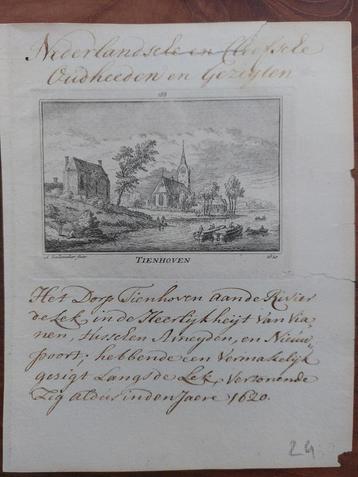 Nederlandsche en Cleefsche
Oudheeden en Gezigten
188
TIENHOVEN
1620
Het Dorp Tienhoven aan de Rivier
de Lek, in de Heerlijkheijt van Via-
nen, tusschen Ameyden, en Nieuw-
poort; hebbende een Vermakelijk
gezigt Langs de Lek, Vertonende
Zig aldus in den Jaere 1620.
24